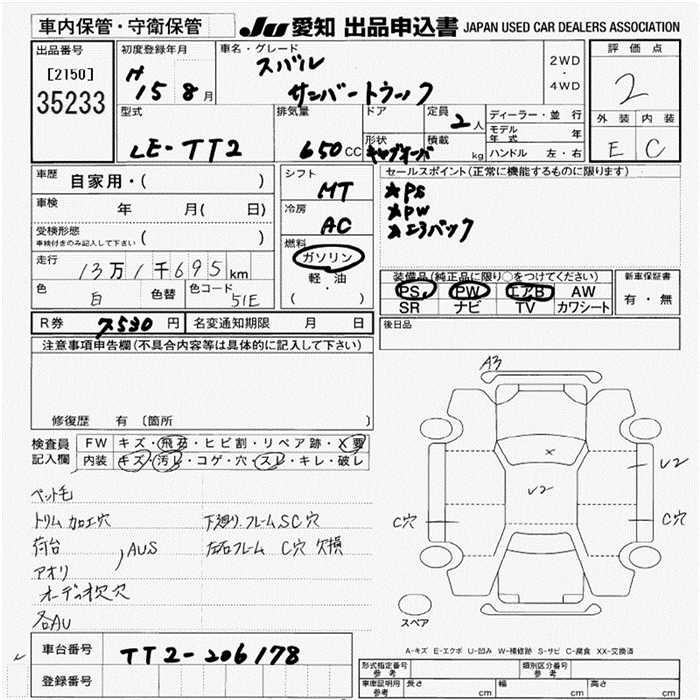 車内保管・守衛保管
JU 愛知 出品申込書 JAPAN USED CAR DEALERS ASSOCIATION
出品番号
[2150]
35233
初度登録年月
H 15 8月
車名・グレード
スバル
サンバートラック
2WD
・
4WD
評価点
2
外装 内装
E C
型式
LE-TT2
排気量
650CC
ドア
形状
キャブオーバ
定員
2人
積載
kg
ディーラー・並行
モデル年式 年
ハンドル 左・右
車歴
自家用・( )
車検
年 月( 日)
受検形態
車検付きのみ記入して下さい ( )
走行
13万1千695km
色
白
色替
色コード
51E
シフト
MT
冷房
AC
燃料
ガソリン
軽・油
( )
セールスポイント(正常に機能するものに限ります)
★PS
★PW
★エアバック
装備品(純正品に限り○をつけてください)
PS PW エアB AW
SR ナビ TV カワシート
新車保証書
有・無
R券 7530円
名変通知期限 月 日
後日品
注意事項申告欄(不具合内容等は具体的に記入して下さい)
修復歴 有 〔箇所 〕
検査員
記入欄
FW キズ・飛石・ヒビ割・リペア跡・X要
内装 キズ・汚レ・コゲ・穴・スレ・キレ・破レ
ペット毛
トリム加工穴
荷台
アオリ
AUS
オーディオ欠穴
各AU
下廻り.フレームSC穴
左右フレーム C穴 欠損
A3
X
U2
U2
C穴
C穴
スペア
A-キズ E-エクボ U-凹み W-補修跡 S-サビ C-腐食 XX-交換済
車台番号
TT2-206178
登録番号
型式指定番号
参考
類別区分番号
参考
車庫証明用
参考
長さ cm
幅 cm
高さ cm